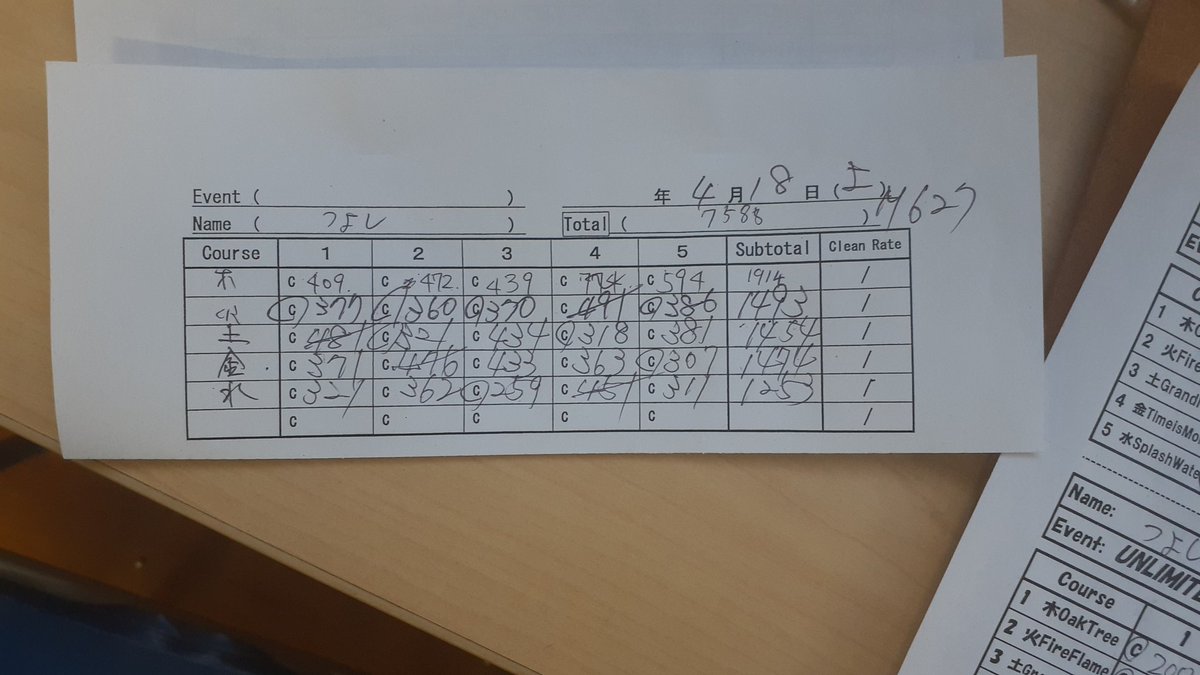 Event ( )
年 4月18日(土)
Name ( つよし )
Total ( 7588 ) 14627
Course 1 2 3 4 5 Subtotal Clean Rate
木 C 409. C 472. C 439 C 774 C 594 1914 /
火 C 377 C 360 C 370 C 491 C 386 1493 /
土 C 481 C 321 C 434 C 318 C 381 1454 /
金 C 371 C 476 C 433 C 363 C 307 1474 /
水 C 321 C 362 C 259 C 451 C 311 1253 /
C C C C C /
1 木
2 火Fire
3 土Grand
4 金TimeisMo
5 水SplashWate
Name: つよし
Event: UNLIMITE
Course 1
1 木OakTree C 200
2 火FireFlame
3 土Gra